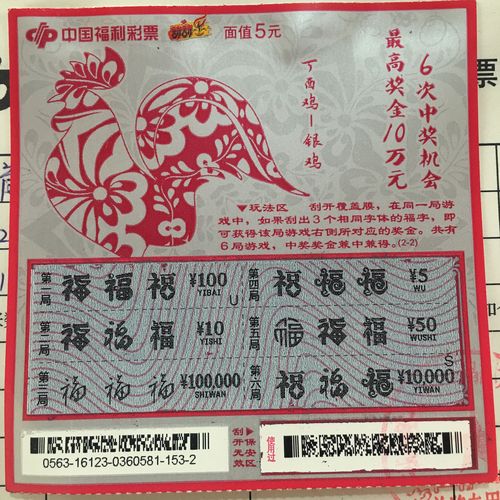 中国福利彩票 刮刮乐 面值5元
6次中奖机会
最高奖金10万元
丁酉鸡—银鸡
▼玩法区 刮开覆盖膜，在同一局游
戏中，如果刮出3个相同字体的福字，即
可获得该局游戏右侧所对应的奖金。共有
6局游戏，中奖奖金兼中兼得。(2-2)
第一局 福 福 福 ¥100 YIBAI U
第二局 福 福 福 ¥10 YISHI
第三局 福 福 福 ¥100,000 SHIWAN
第四局 福 福 福 ¥5 WU
第五局 福 福 福 ¥50 WUSHI
第六局 福 福 福 ¥10,000 YIWAN S
0563-16123-0360581-153-2
刮开无效
保安区
使用过
票